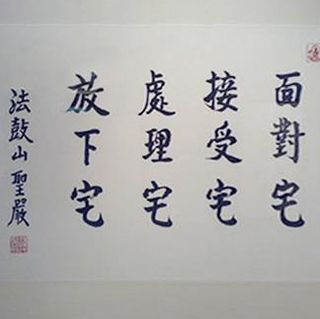 面對它
接受它
處理它
放下它
法鼓山聖嚴